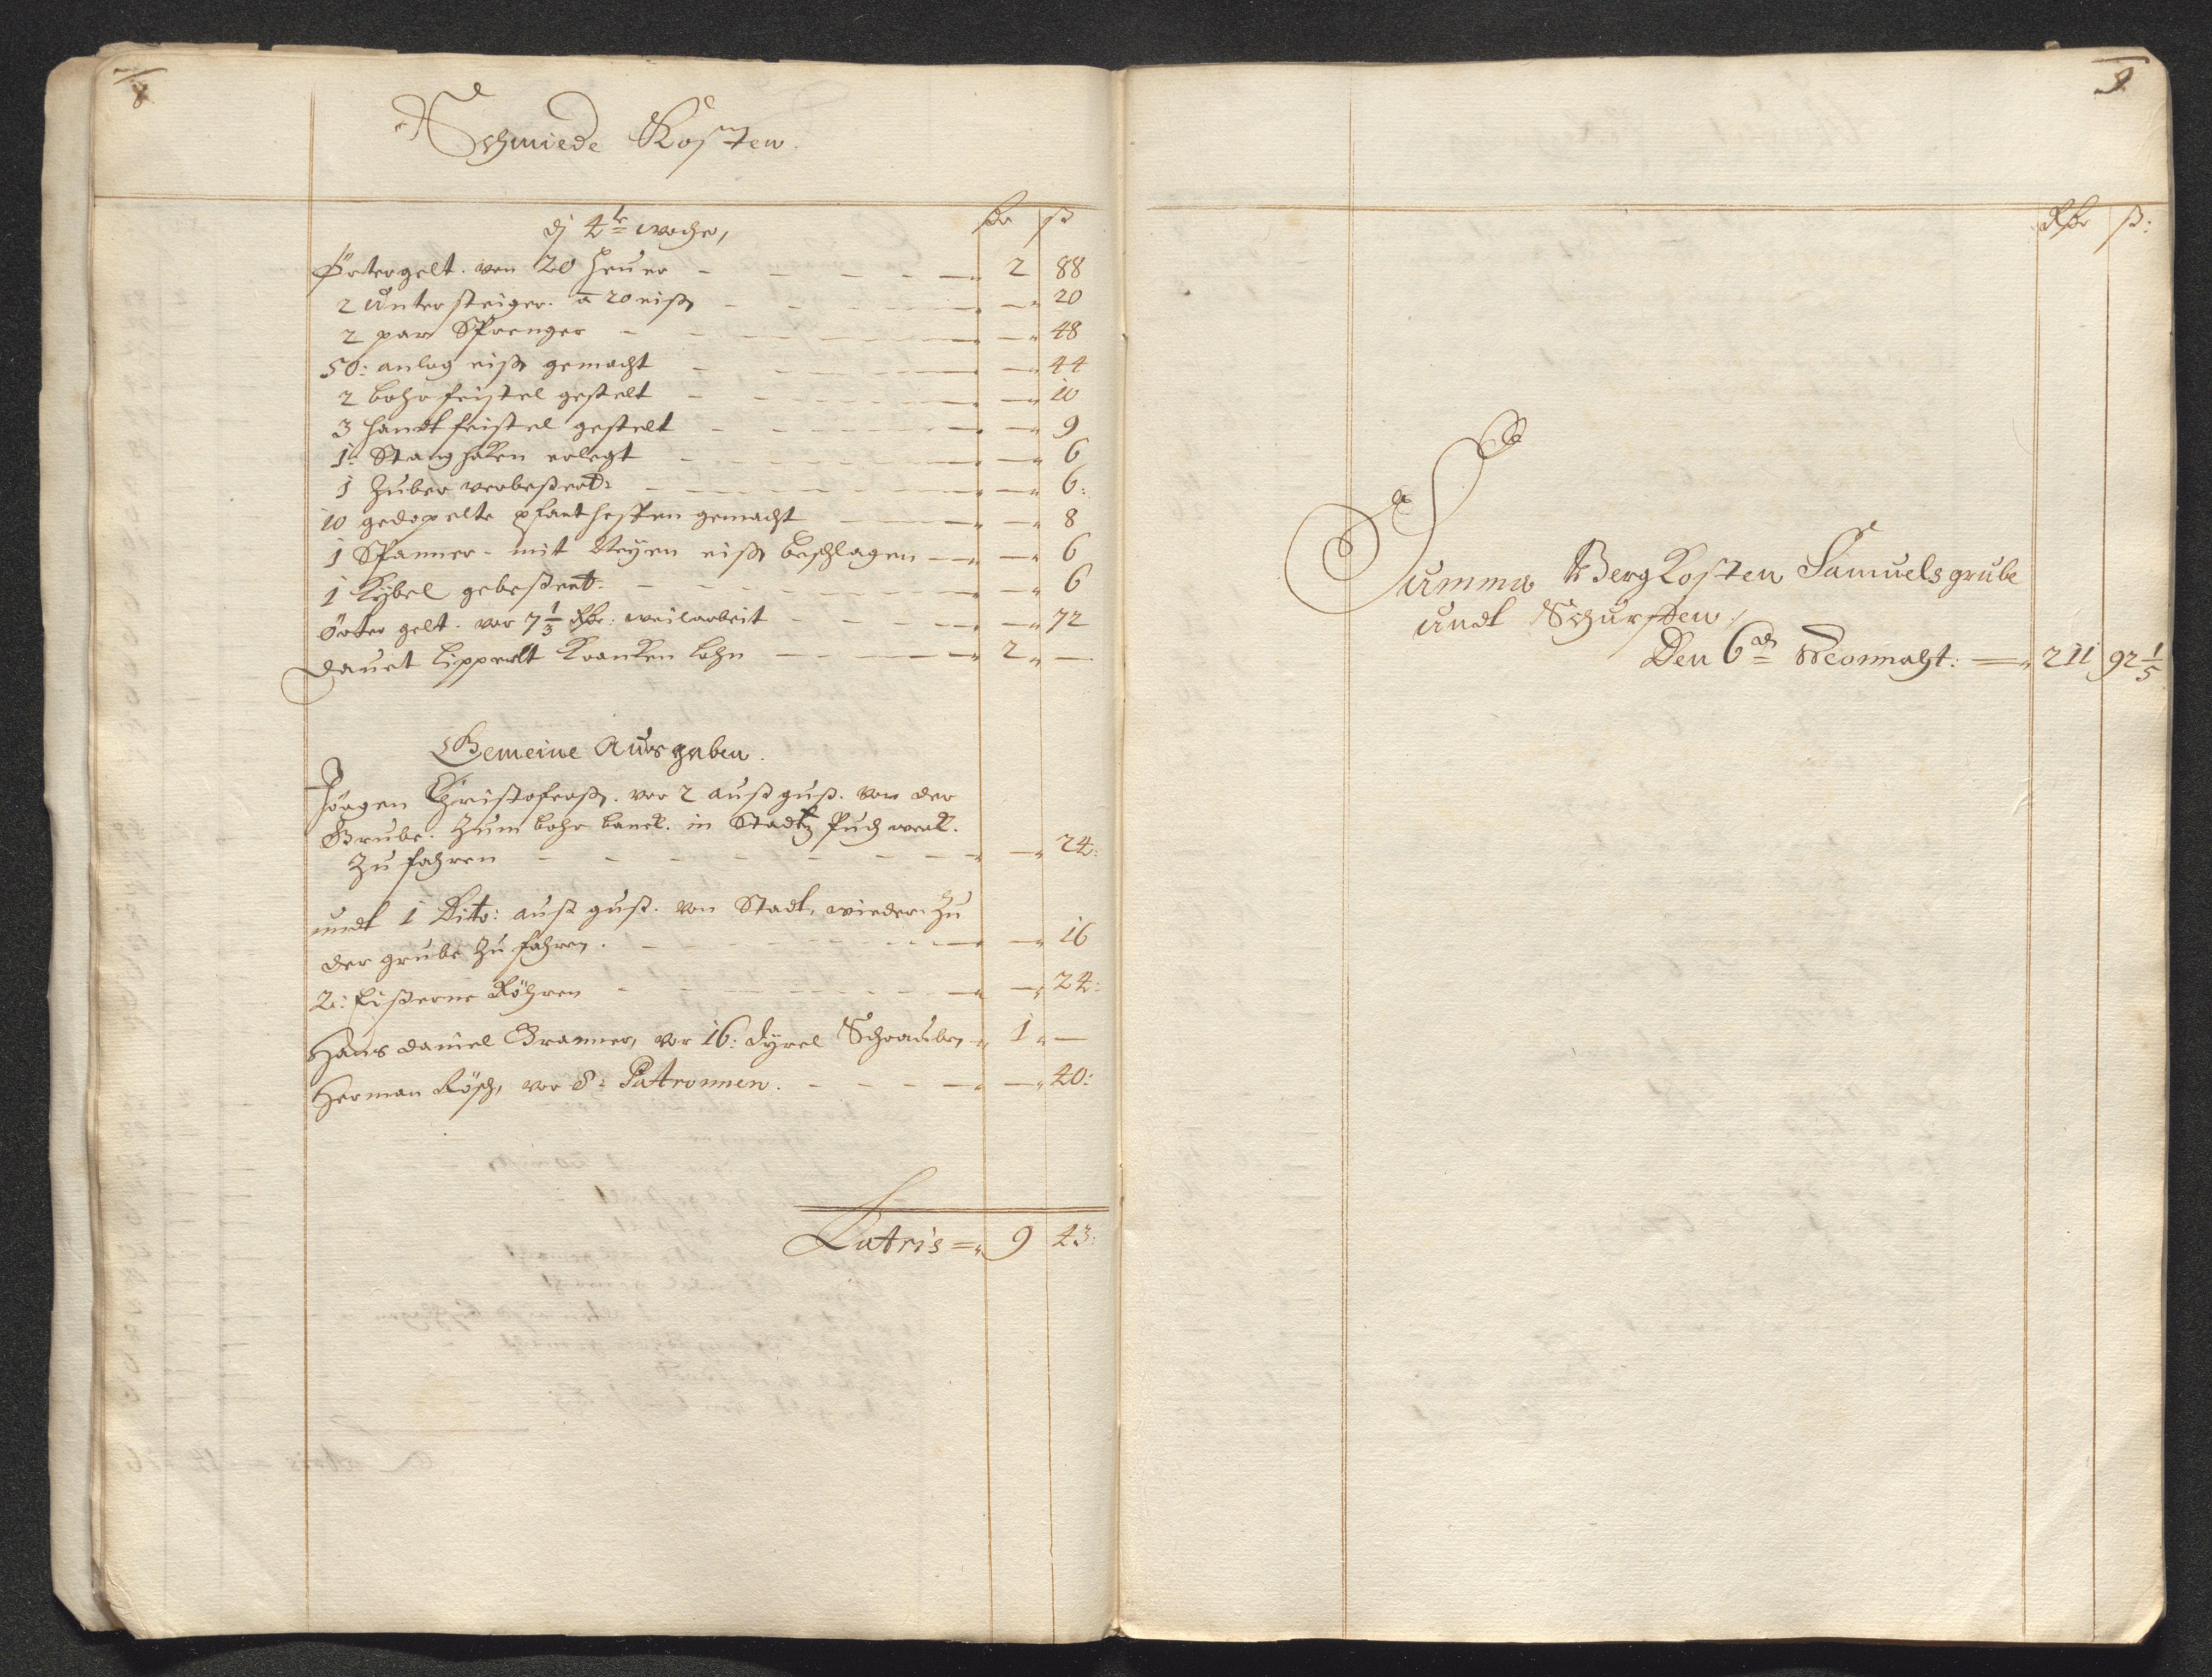 8
Schmiede Kosten.
dj 4te woche,
Rdr ß
Örtergelt. von 20 heuer - - - - 2 88
2 Untersteiger. a 20 eiß - - - - 20
2 par Sprenger - - - - 48
50: anlag eiß gemacht - - - - 44
2 bohr feistel gestelt - - - - 10
3 handt feistel gestelt - - - - 9
1: Stang haken erlegt - - - - 6
1 Zuber verbeßert: - - - - 6:
10 gedopelte gemacht - - - - 8
1 Spanner - mit eiß beschlagen - - 6
1 Kybel gebeßert: - - - - 6
Örter gelt. vor 7 1/3 Rdr: weilarbeit - - - - 72
Dauet Lippertt Kranken lohn - - - - 2 -
Gemeine Ausgaben.
Jörgen Christoferß. vor 2 außguß. von der
Grube. Zum bohr banck. in Stadtz Puchwerk.
Zu fahren - - - - 24:
undt 1 Dito: auß guß. von Stadt, wieder Zu
der grube Zu fahren. - - - - 16
2: Eißerne Röhren - - - - 24:
Hans Daniel Branner, vor 16: dyrel Schrauben 1 -
Herman Rösch, vor 8: Patronnen. - - - - 40:
Latris = 9 43:
9
Rdr ß:
Summa BergKosten Samuelsgrube
undt Schurffen,
Den 6ch Mormaht: = 211 92 1/5